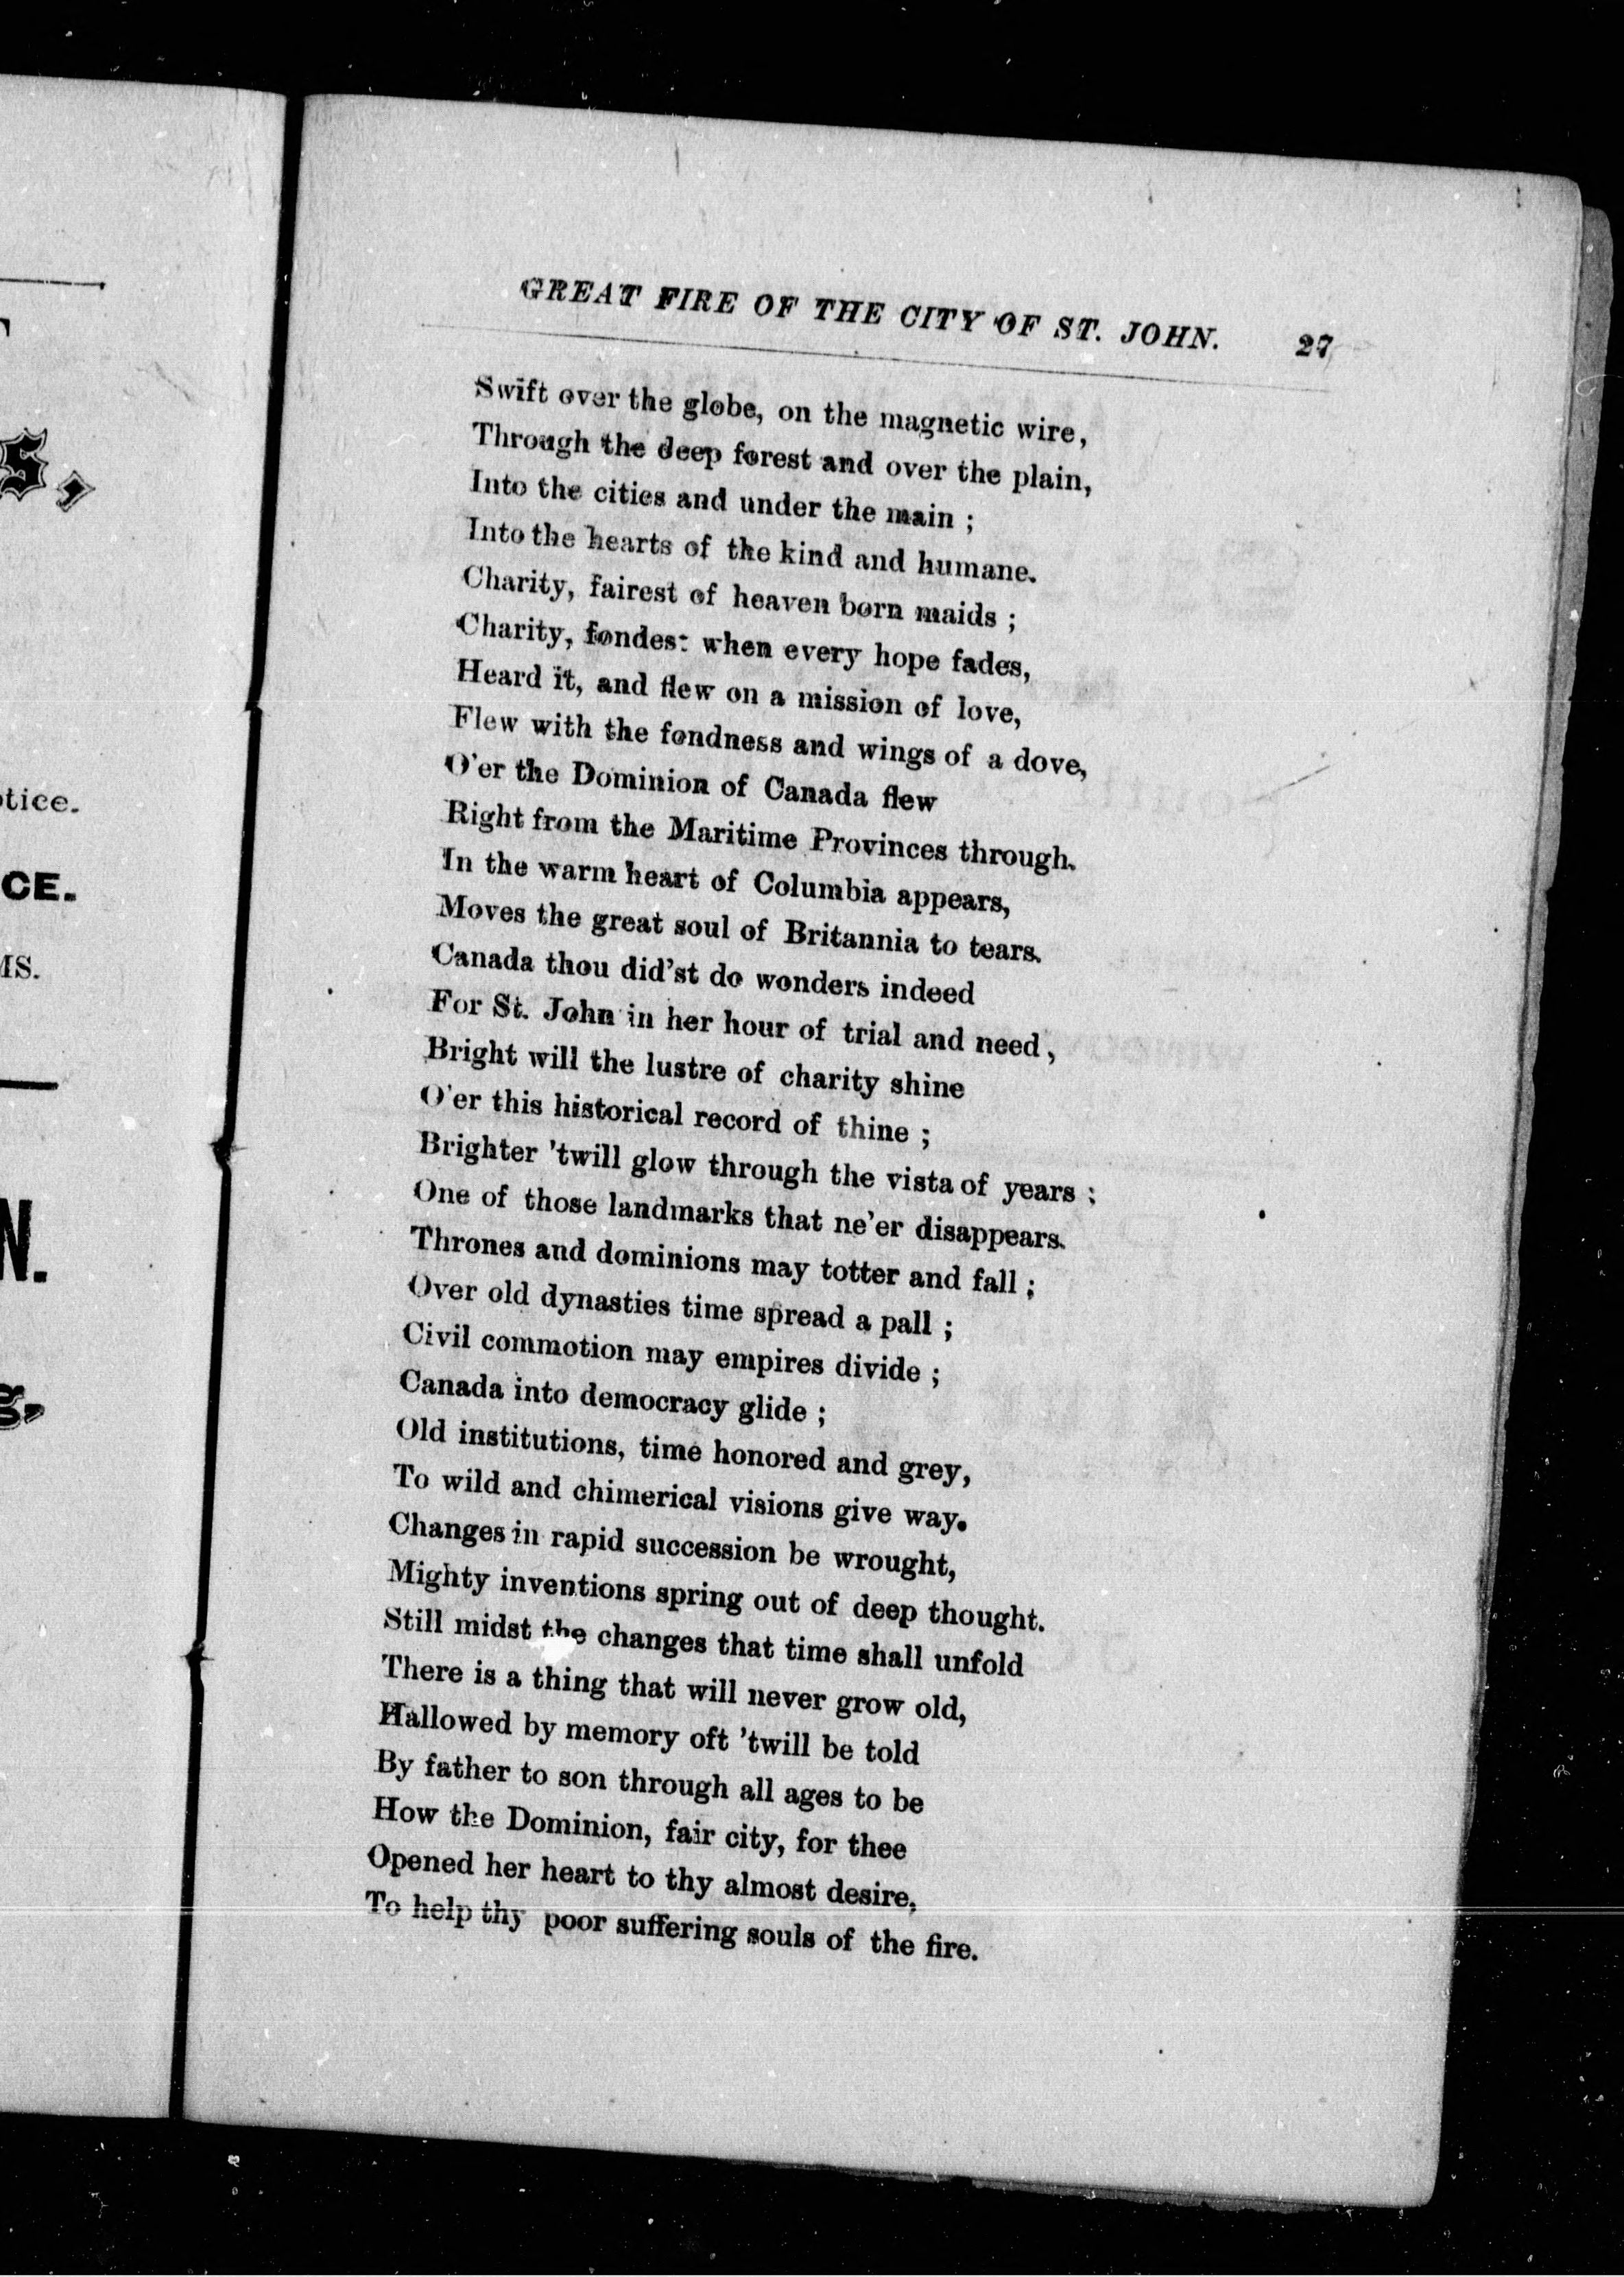 tice.
CE.
MS.
N.
GREAT FIRE OF THE CITY OF ST. JOHN. 27
Swift over the globe, on the magnetic wire,
Through the deep forest and over the plain,
Into the cities and under the main ;
Into the hearts of the kind and humane.
Charity, fairest of heaven born maids ;
Charity, fondest when every hope fades,
Heard it, and flew on a mission of love,
Flew with the fondness and wings of a dove,
O'er the Dominion of Canada flew
Right from the Maritime Provinces through.
In the warm heart of Columbia appears,
Moves the great soul of Britannia to tears.
Canada thou did'st do wonders indeed
For St. John in her hour of trial and need,
Bright will the lustre of charity shine
O'er this historical record of thine ;
Brighter 'twill glow through the vista of years ;
One of those landmarks that ne'er disappears.
Thrones and dominions may totter and fall ;
Over old dynasties time spread a pall ;
Civil commotion may empires divide ;
Canada into democracy glide ;
Old institutions, time honored and grey,
To wild and chimerical visions give way.
Changes in rapid succession be wrought,
Mighty inventions spring out of deep thought.
Still midst the changes that time shall unfold
There is a thing that will never grow old,
Hallowed by memory oft 'twill be told
By father to son through all ages to be
How the Dominion, fair city, for thee
Opened her heart to thy almost desire,
To help thy poor suffering souls of the fire.